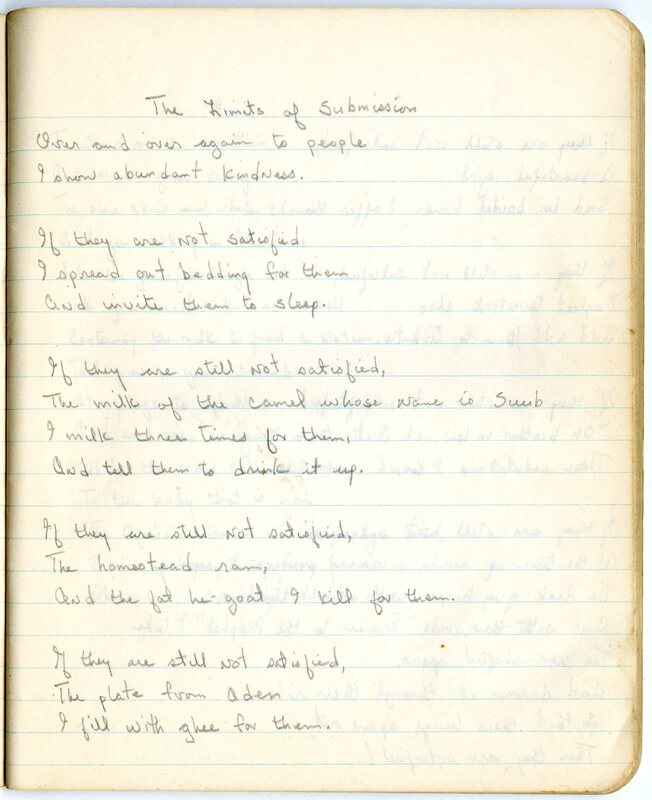 The Limits of Submission
Over and over again to people
I show abundant kindness.
If they are not satisfied
I spread out bedding for them
And invite them to sleep.
If they are still not satisfied,
The milk of the camel whose name is Suub
I milk three times for them,
And tell them to drink it up.
If they are still not satisfied,
The homestead ram,
And the fat he-goat I kill for them.
If they are still not satisfied,
The plate from Aden
I fill with ghee for them.